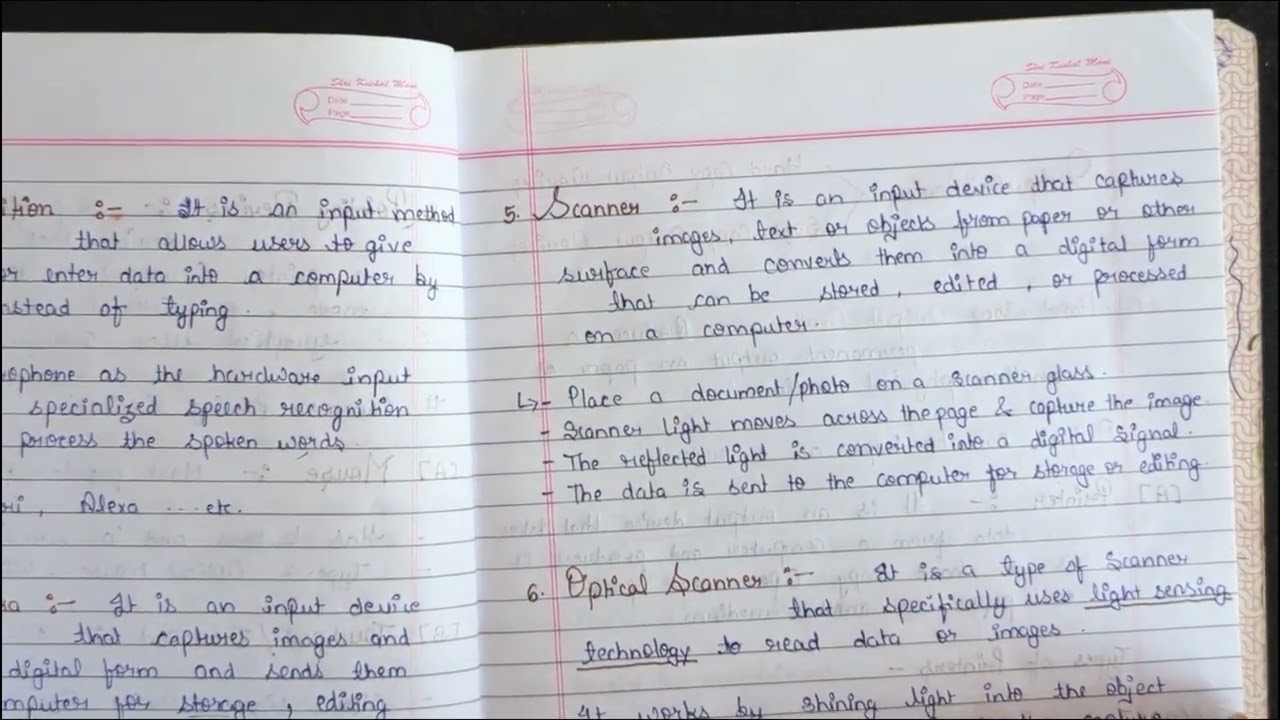 Shri Kushal Mani
Date
Page
ition :- It is an input method
that allows users to give
or enter data into a computer by
nstead of typing.
ophone as the hardware input
specialized speech recognition
process the spoken words.
ri, Alexa ....etc.
ra :- It is an input device
that captures images and
digital form and sends them
mputer for storage, editing
Shri Kushal Mani
Date
Page
5. Scanner :- It is an input device that captures
images, text or objects from paper or other
surface and converts them into a digital form
that can be stored, edited, or processed
on a computer.
↳- Place a document/photo on a scanner glass.
- Scanner light moves across the page & capture the image.
- The reflected light is converted into a digital signal.
- The data is sent to the computer for storage or editing.
6. Optical Scanner :- It is a type of Scanner
that specifically uses light sensing
technology to read data or images.
It works by shining light into the object